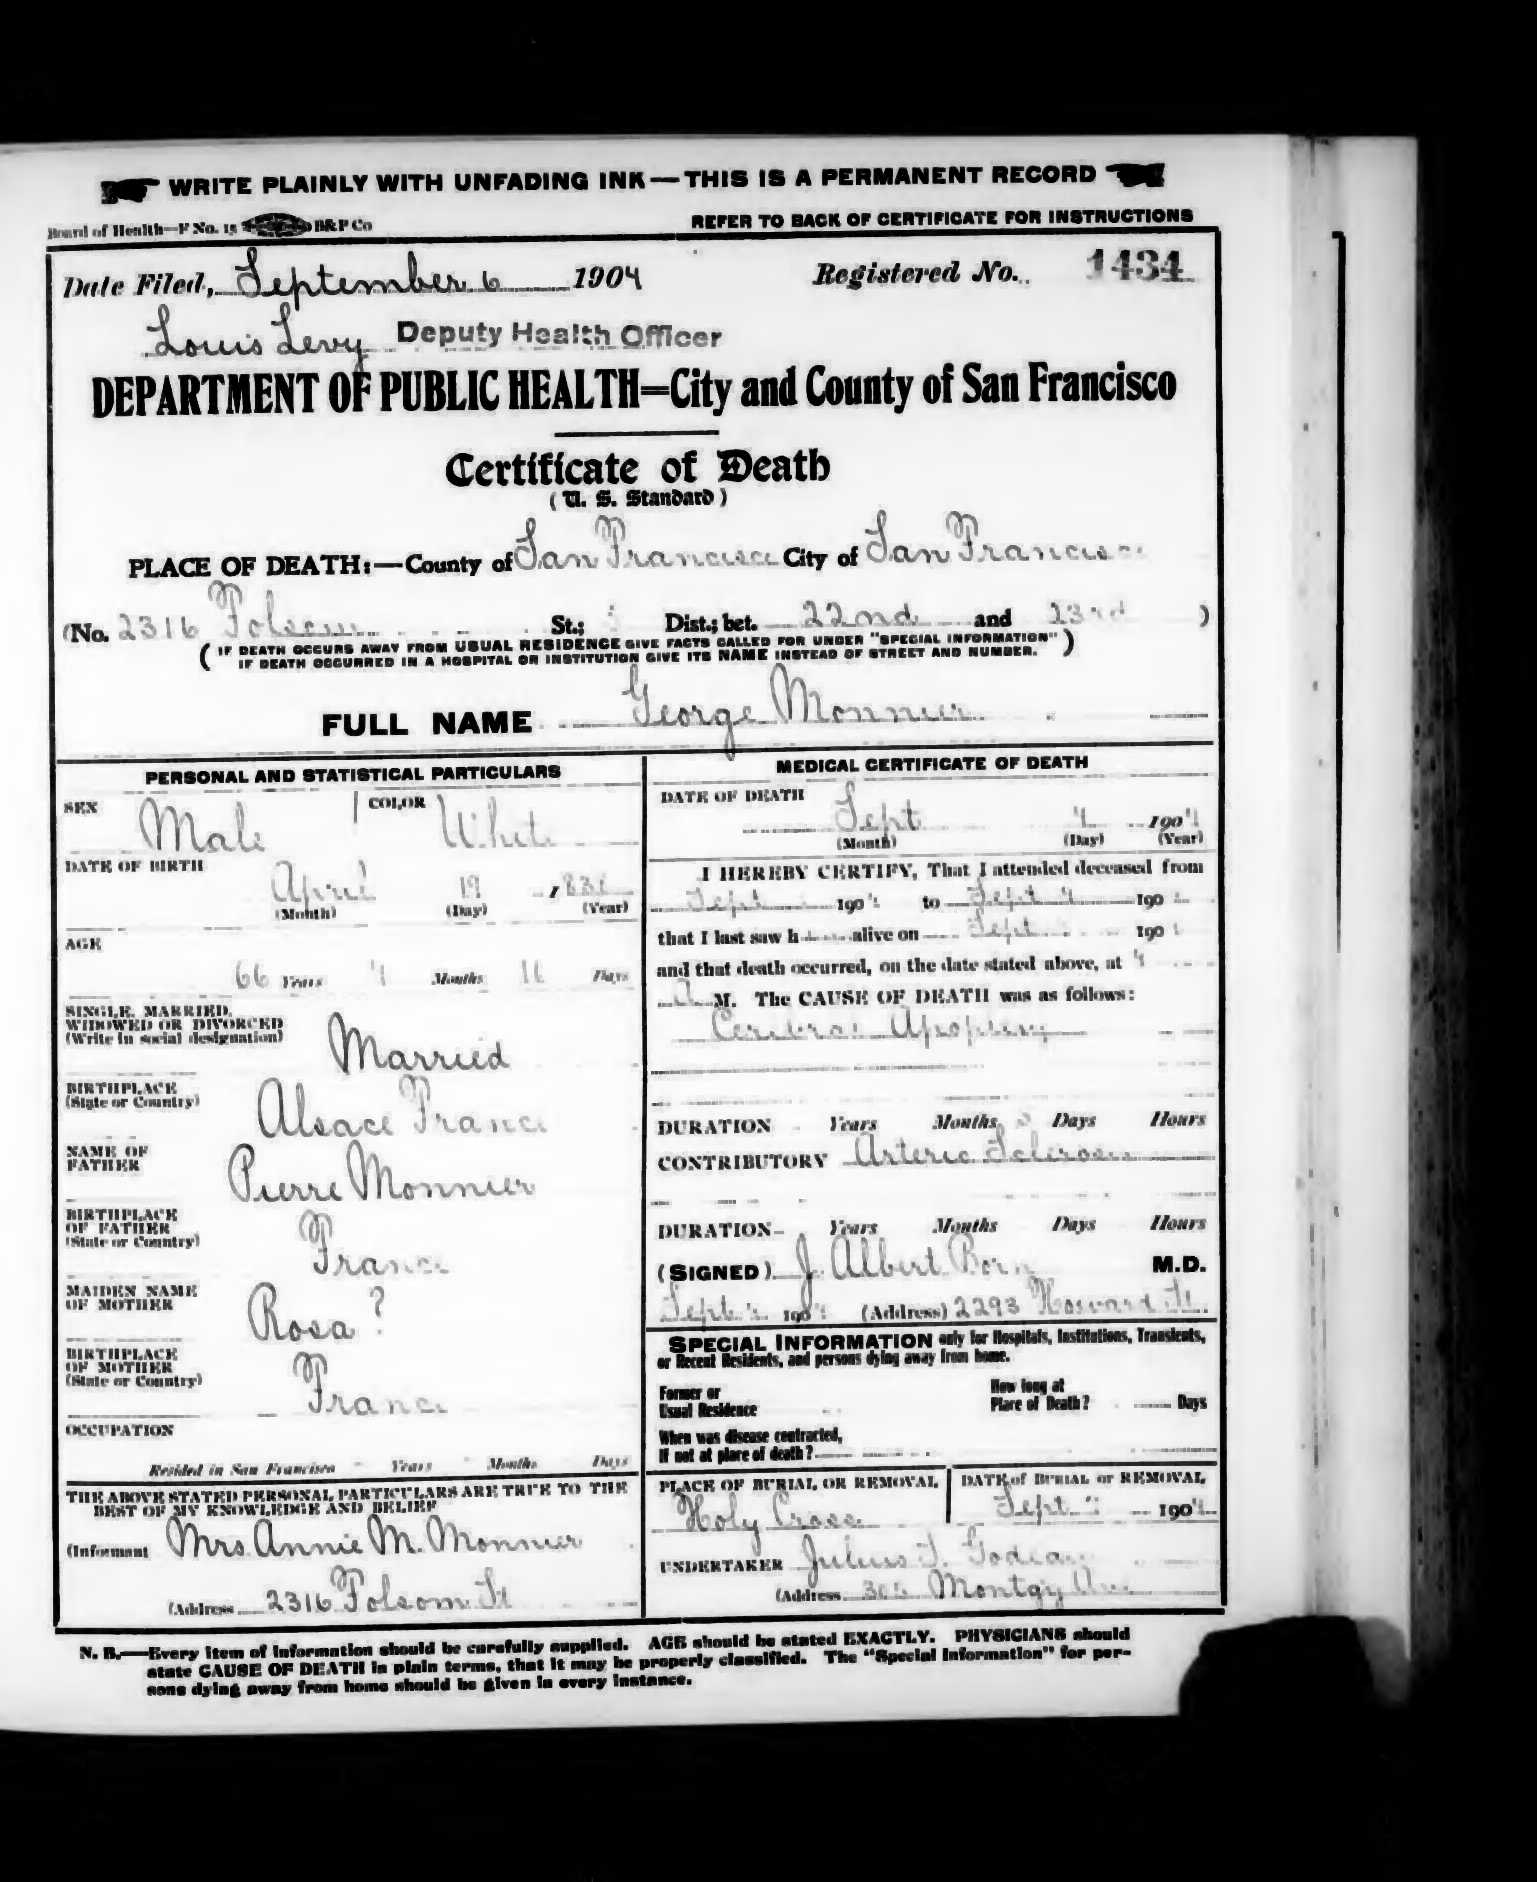 WRITE PLAINLY WITH UNFADING INK—THIS IS A PERMANENT RECORD
Board of Health—F No. 15 B&P Co
REFER TO BACK OF CERTIFICATE FOR INSTRUCTIONS
Date Filed, September 6 1904 Registered No. 1434
Louis Levy Deputy Health Officer
DEPARTMENT OF PUBLIC HEALTH=City and County of San Francisco
Certificate of Death
(U. S. Standard)
PLACE OF DEATH:—County of San Francisco City of San Francisco
(No. 2316 Folsom St.; Dist.; bet. 22nd and 23rd )
( IF DEATH OCCURS AWAY FROM USUAL RESIDENCE GIVE FACTS CALLED FOR UNDER "SPECIAL INFORMATION" )
IF DEATH OCCURRED IN A HOSPITAL OR INSTITUTION GIVE ITS NAME INSTEAD OF STREET AND NUMBER.
FULL NAME George Monnier
PERSONAL AND STATISTICAL PARTICULARS
SEX Male COLOR White
DATE OF BIRTH
April 19
(Month) (Day) (Year)
AGE
66 Years 4 Months Days
SINGLE, MARRIED,
WIDOWED OR DIVORCED
(Write in social designation)
Married
BIRTHPLACE
(State or Country)
Alsace France
NAME OF
FATHER
Pierre Monnier
BIRTHPLACE
OF FATHER
(State or Country)
France
MAIDEN NAME
OF MOTHER
Rosa ?
BIRTHPLACE
OF MOTHER
(State or Country)
France
OCCUPATION
Resided in San Francisco Years Months Days
THE ABOVE STATED PERSONAL PARTICULARS ARE TRUE TO THE
BEST OF MY KNOWLEDGE AND BELIEF
(Informant Mrs. Annie M. Monnier
(Address 2316 Folsom St
MEDICAL CERTIFICATE OF DEATH
DATE OF DEATH
Sept 4 1904
(Month) (Day) (Year)
I HEREBY CERTIFY, That I attended deceased from
Sept 1904 to Sept 4 190
that I last saw h alive on Sept 190
and that death occurred, on the date stated above, at 4
A M. The CAUSE OF DEATH was as follows:
Cerebral Apoplexy
DURATION Years Months Days Hours
CONTRIBUTORY Arterio Sclerosis
DURATION Years Months Days Hours
(SIGNED) J. Albert Born M.D.
Sept 1904 (Address) 2293 Howard St.
SPECIAL INFORMATION only for Hospitals, Institutions, Transients,
or Recent Residents, and persons dying away from home.
Former or
Usual Residence
How long at
Place of Death? Days
When was disease contracted,
If not at place of death?
PLACE OF BURIAL OR REMOVAL
Holy Cross
DATE of BURIAL or REMOVAL
Sept 1904
UNDERTAKER Julius S. Godeau
(Address Montg'y Ave
N. B.—Every item of information should be carefully supplied. AGE should be stated EXACTLY. PHYSICIANS should
state CAUSE OF DEATH in plain terms, that it may be properly classified. The "Special Information" for per-
sons dying away from home should be given in every instance.